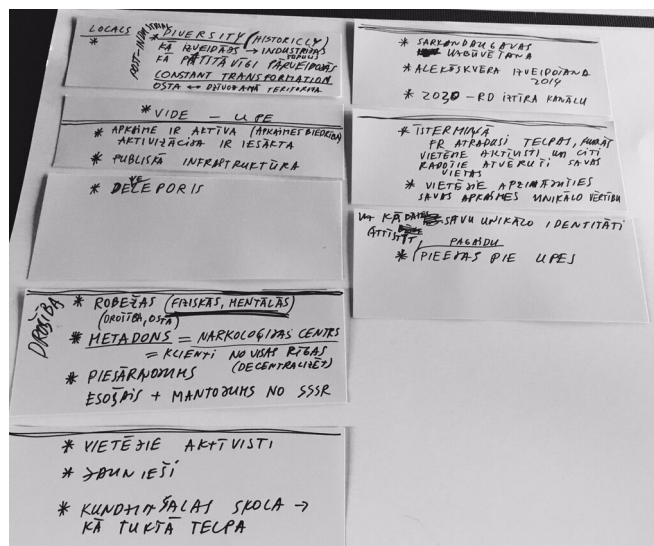 LOCALS
*
POST-INDUSTRIAL
* DIVERSITY (HISTORICLY)
KĀ IZVEIDOJĀS → INDUSTRIJAS
KĀ PĀTSTĀVĪGI PĀRVEIDOJAS
CONSTANT TRANSFORMATION
OSTA ↔ DZĪVOJAMĀ TERITORIJA
* VIDE – UPE
* APKAIME IR AKTĪVA (APKAIMES BIEDRĪBA)
AKTIVIZĀCIJA IR IESĀKTA
* PUBLISKĀ INFRASTRUKTŪRA
* DEVELEPORIS
DROŠĪBA
* ROBEŽAS (FIZISKĀS, MENTĀLĀS)
(DROŠĪBA, OSTA)
* METADONS = NARKOLOĢIJAS CENTRS
= KLIENTI NO VISAS RĪGAS
(DECENTRALIZĒT)
* PIESĀRŅOJUMS
ESOŠAIS + MANTOJUMS NO SSSR
* VIETĒJIE AKTĪVISTI
* JAUNIEŠI
* KUNDZIŅSALAS SKOLA →
KĀ TUKŠĀ TELPA
* SARKANDAUGAVAS
UZBŪVĒŠANA
* ALEKŠSKVĒRA IZVEIDOŠANA
2014
* 2030 – RD IZTĪRA KANĀLU
* ĪSTERMIŅĀ
PR ATRADUŠI TELPAS, KURĀS
VIETĒJIE AKTĪVISTI UN CITI
RADOŠIE ATVĒRUŠI SAVAS
VIETAS
* VIETĒJIE APZINĀJUŠIES
SAVAS APKAIMES UNIKĀLO VĒRTĪBU
UN KĀ SAVU UNIKĀLO IDENTITĀTI
ATTĪSTĪT
PAGAIDU
* PIEEJAS PIE UPES